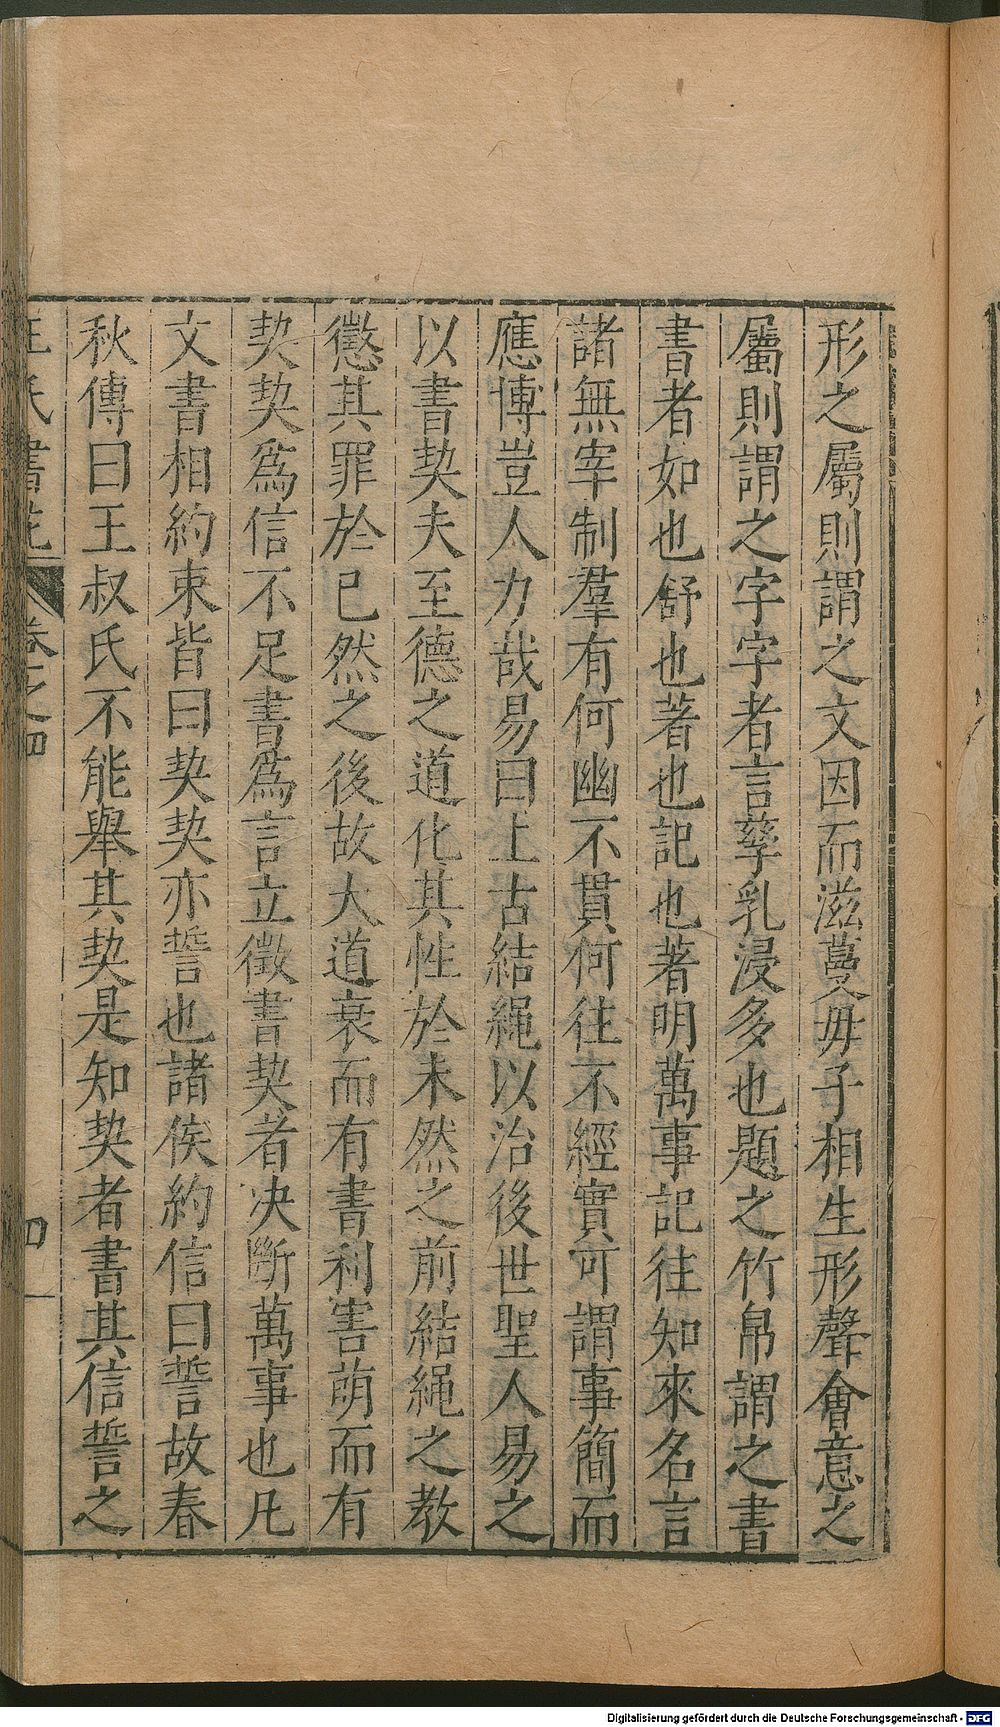 形之屬則謂之文因而滋蔓毋子相生形聲會意之
屬則謂之字字者言孳乳浸多也題之竹帛謂之書
書者如也舒也著也記也著明萬事記往知來名言
諸無宰制羣有何幽不貫何往不經實可謂事簡而
應博豈人力哉易曰上古結繩以治後世聖人易之
以書契夫至德之道化其性於未然之前結繩之教
懲其罪於已然之後故大道衰而有書利害萌而有
契契爲信不足書爲言立徵書契者決斷萬事也凡
文書相約束皆曰契契亦誓也諸侯約信曰誓故春
秋傳曰王叔氏不能舉其契是知契者書其信誓之
王氏書苑 卷之四 四
Digitalisierung gefördert durch die Deutsche Forschungsgemeinschaft - DFG